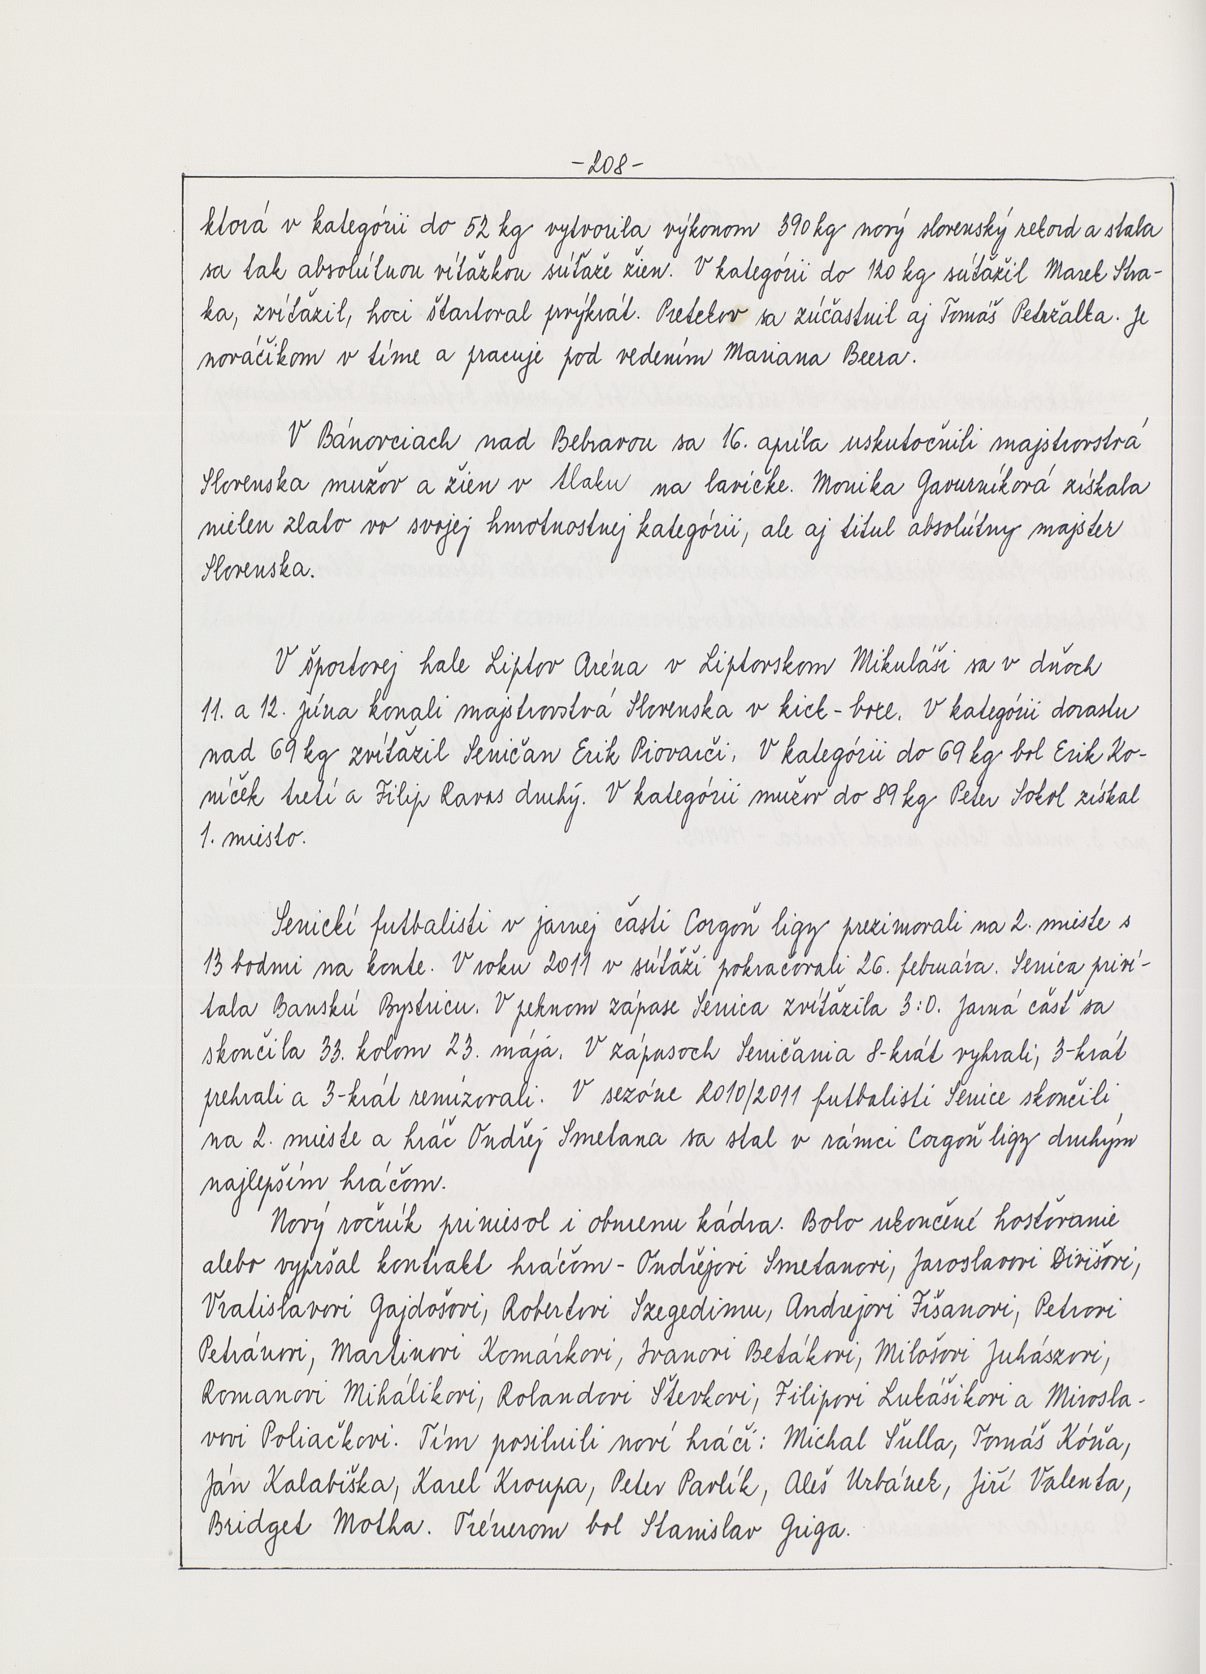 -208-
ktorá v kategórii do 52 kg vytvorila výkonom 390 kg nový slovenský rekord a stala
sa tak absolútnou víťažkou súťaže žien. V kategórii do 120 kg súťažil Marek Stra-
ka, zvíťazil, hoci štartoval prvýkrát. Pretekov sa zúčastnil aj Tomáš Petržalka. Je
nováčikom v tíme a pracuje pod vedením Mariana Beera.
V Bánovciach nad Bebravou sa 16. apríla uskutočnili majstrovstvá
Slovenska mužov a žien v tlaku na lavičke. Monika Gavurníková získala
nielen zlato vo svojej hmotnostnej kategórii, ale aj titul absolútny majster
Slovenska.
V športovej hale Liptov Aréna v Liptovskom Mikuláši sa v dňoch
11. a 12. júna konali majstrovstvá Slovenska v kick-boxe. V kategórii dorastu
nad 69 kg zvíťazil Seničan Erik Piovarči. V kategórii do 69 kg bol Erik Ko-
níček tretí a Filip Ravas druhý. V kategórii mužov do 89 kg Peter Sokol získal
1. miesto.
Senickí futbalisti v jarnej časti Corgoň ligy prezimovali na 2. mieste s
13 bodmi na konte. V roku 2011 v súťaži pokračovali 26. februára. Senica priví-
tala Banskú Bystricu. V peknom zápase Senica zvíťazila 3:0. Jarná časť sa
skončila 33. kolom 23. mája. V zápasoch Seničania 8-krát vyhrali, 3-krát
prehrali a 3-krát remízovali. V sezóne 2010/2011 futbalisti Senice skončili
na 2. mieste a hráč Ondřej Smetana sa stal v rámci Corgoň ligy druhým
najlepším hráčom.
Nový ročník priniesol i obmenu kádra. Bolo ukončené hosťovanie
alebo vypršal kontrakt hráčom - Ondřejovi Smetanovi, Jaroslavovi Divišovi,
Vratislavovi Gajdošovi, Robertovi Szegedimu, Andrejovi Fišanovi, Petrovi
Petránovi, Martinovi Komárkovi, Ivanovi Beťákovi, Milošovi Juhászovi,
Romanovi Mihálikovi, Rolandovi Števkovi, Filipovi Lukášikovi a Mirosla-
vovi Poliačkovi. Tím posilnili noví hráči: Michal Šulla, Tomáš Kóňa,
Ján Kalabiška, Karel Kroupa, Peter Pavlík, Aleš Urbánek, Jiří Valenta,
Bridget Motha. Trénerom bol Stanislav Griga.